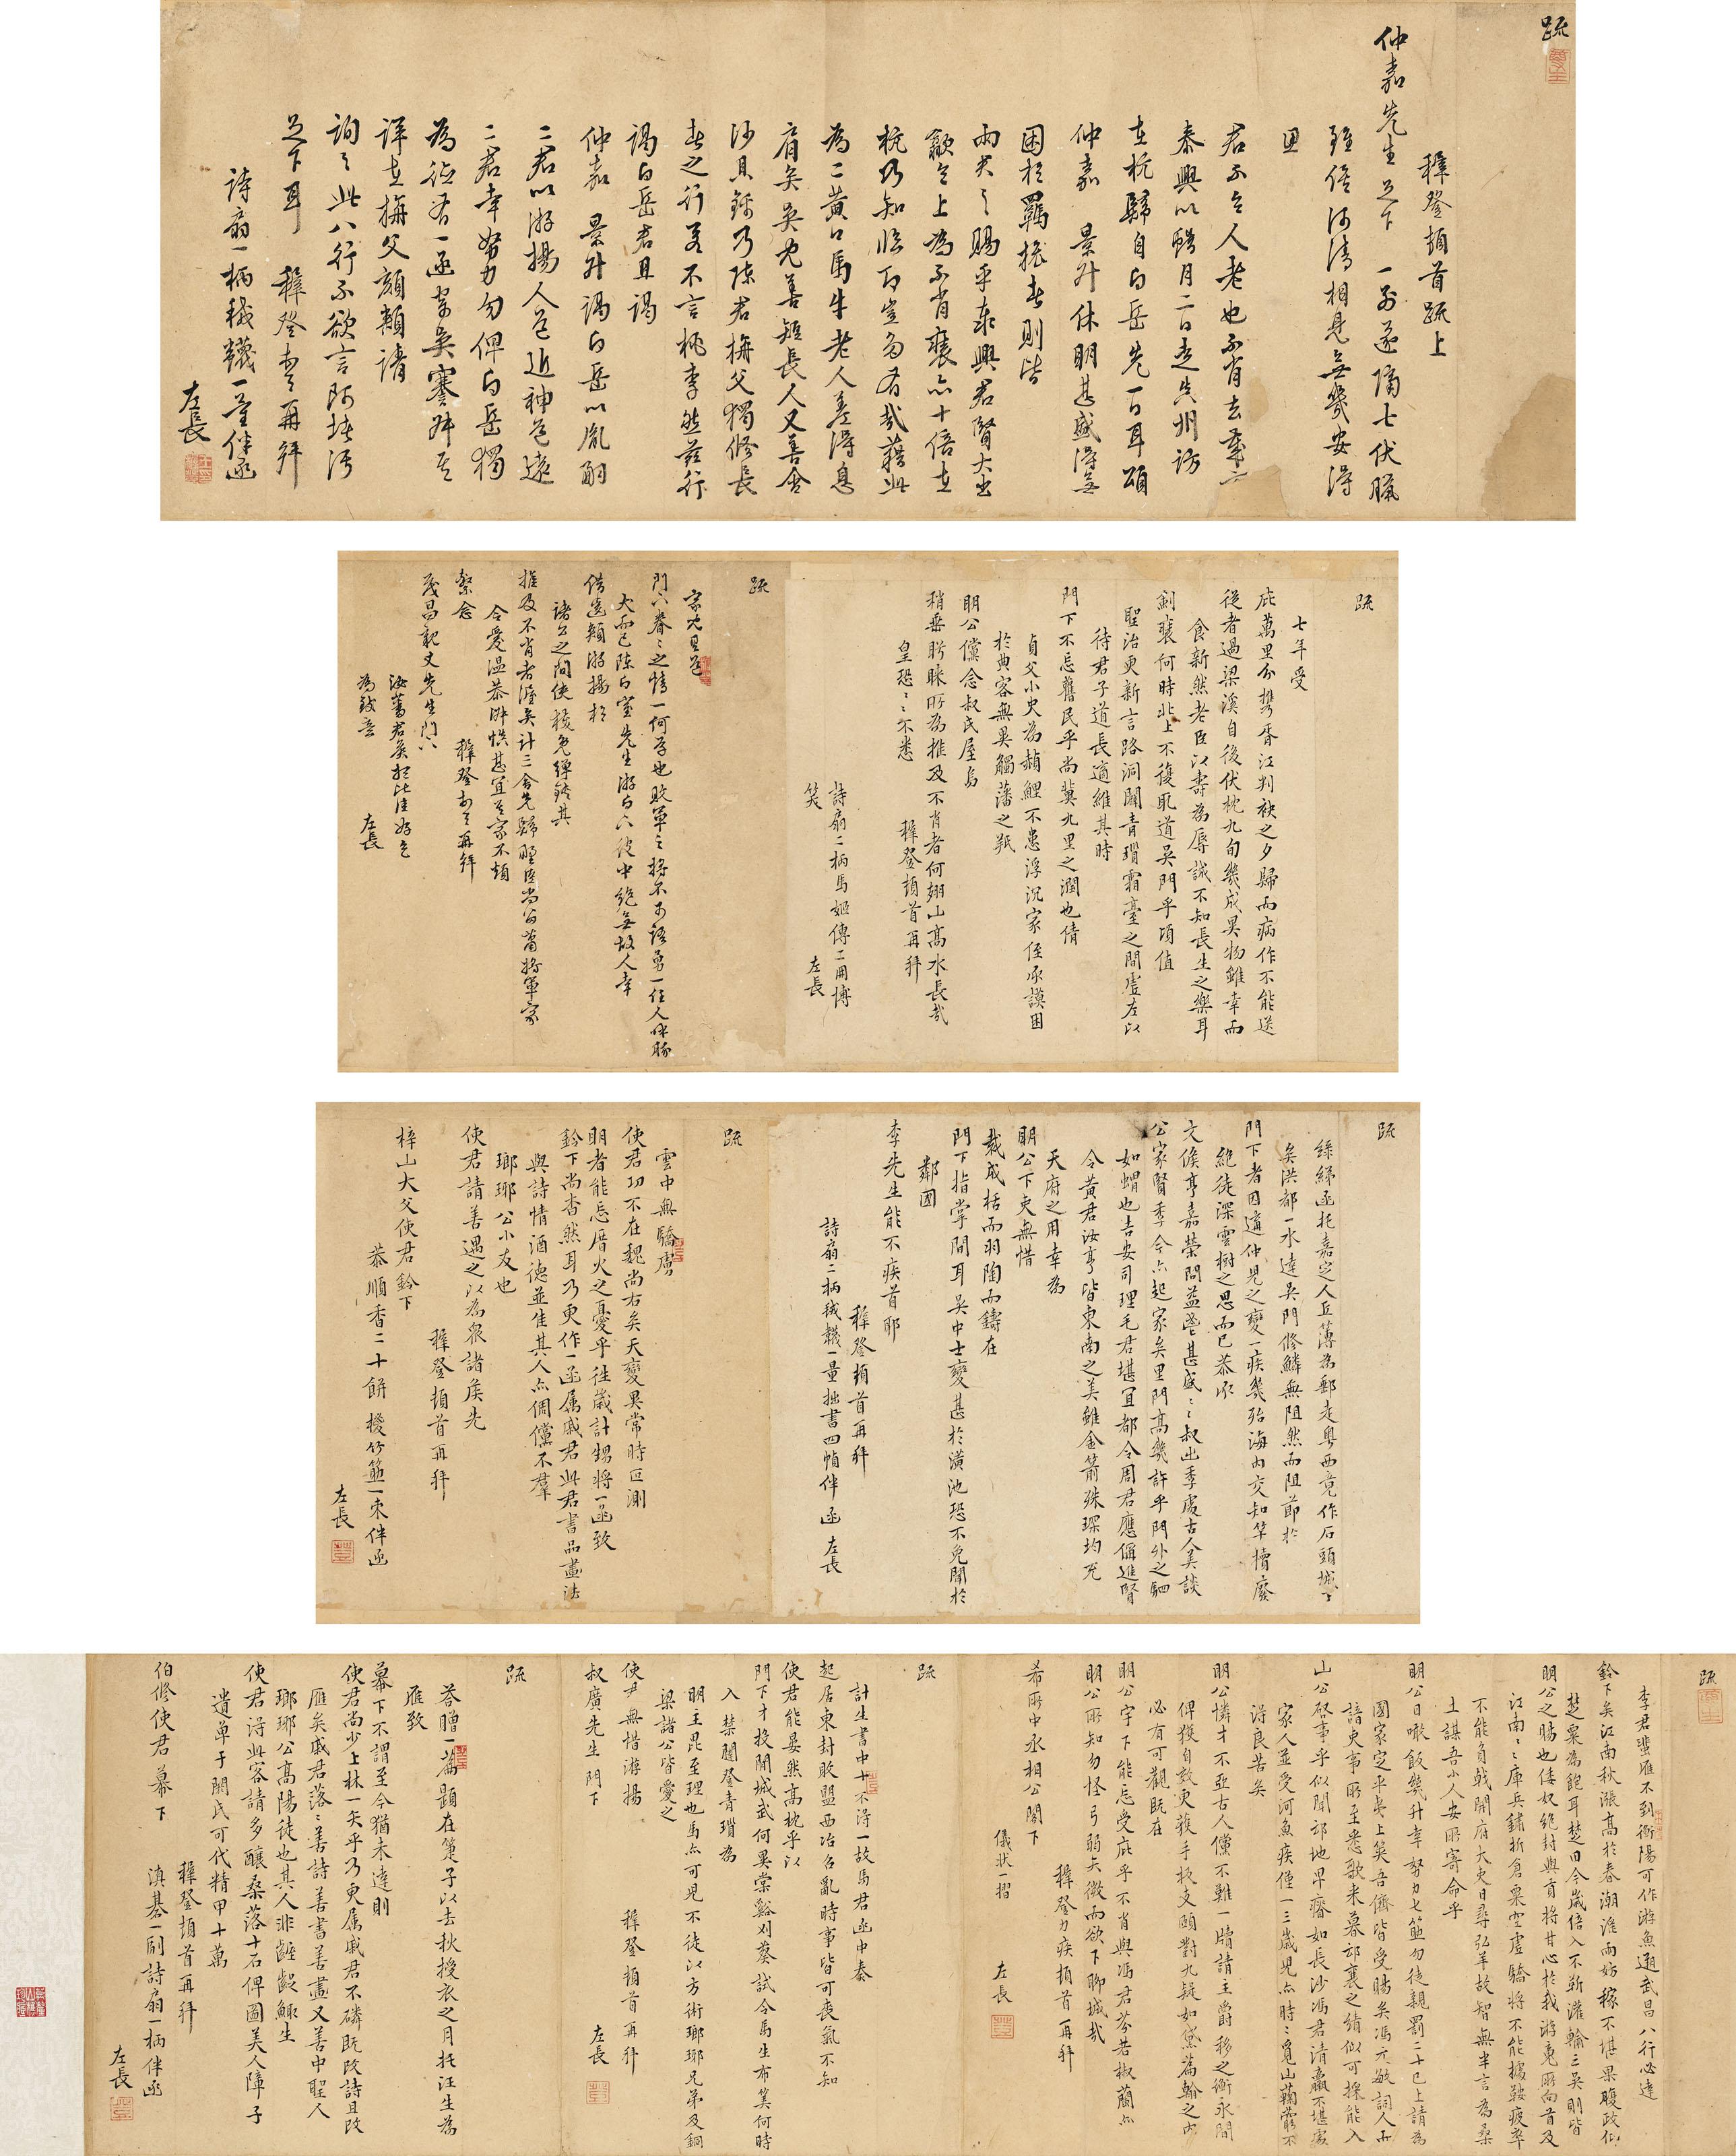 疏
穉登頓首疏上
仲嘉先生足下一別遂隔七伏臘
雖倍河清相見無幾安得
思
君不令人老也不肖去年
泰興以臘月二日走
在杭歸自白岳先一日耳頌
仲嘉 景升休明甚盛得無
困於羈旅者則皆
兩君之賜乎泰興君賢大出
歙令上為不肖裹亦十倍在
杭乃知臨邛豈為
為二黃口馬牛老人差得息
肩矣吳兒善短長人又善含
沙且鑠乃陳君梅父獨脩長
者之行若不言桃李然茲行
謁白岳君且謁
仲嘉 景升謁白岳以胤嗣
二君以游揚人邑近神邑遠
二君幸努力勿俾白岳獨
為德有一函
詳在梅父頰請
詢之此八行不欲言阿堵污
足下耳 穉登頓首再拜
詩扇一柄襪一量伴函
左長
疏
七年受
庇萬里分攜香江判袂之夕歸而病作不能送
從者過梁溪自後伏枕九旬幾成異物雖幸而
食新然老臣以壽為辱誠不知長生之樂耳
劍裝何時北上不復取道吳門乎頃值
聖治更新言路洞闢青瑣霜臺之間虛左以
待君子道長適維其時
門下不忘舊民乎尚冀九里之潤也倩
貞父小史為赬鯉不患浮沉家侄承謨困
於典客無異觸藩之羝
明公儻念叔氏屋烏
稍垂盻睞所為推及不肖者何翅山高水長哉
皇恐皇恐不悉
穉登頓首再拜
詩扇二柄馬姬傳二冊博
笑
左長
疏
門下眷眷之情一何厚也敗軍之將不可語勇一任人
大而已陳白室先生游白下彼中絕無故人幸
借齒頰游揚於
諸公之間使免彈鋏其
推及不肖者渥矣計三舍先歸
令愛溫恭甚宜其家不煩
繫念 穉登頓首再拜
茂昌親丈先生門下
為致意
左長
疏
綈函托嘉定人丘簿為郵走粵西竟作石頭城下
矣洪都一水達吳門修鱗無阻然而阻節於
門下者因遭仲兒之變一疾幾殆海內交知竿牘廢
絕徒深雲樹之思而已恭承
文候亨嘉榮問益鬯甚盛甚盛叔出季處古人美談
公家賢季今亦起家矣里門高幾許乎門外之駟
如蝟也吉安司理毛君堪宜都令周君應偁進賢
令黃君汝亨皆東南之美雖金箭殊琛均充
天府之用幸為
明公下吏無惜
裁成栝而羽陶而鑄在
門下指掌間耳吳中士變甚於潢池恐不免聞於
鄰國
李先生能不疾首耶
穉登頓首再拜
詩扇二柄襪一量拙書四幀伴函 左長
疏
雲中無驕虜
使君功不在魏尚右矣天變異常時叵測
明者能忘厝火之憂乎往歲計甥將一函致
鈴下尚杳然耳乃更作一函屬戚君此君書品畫法
與詩情酒德並佳其人亦倜儻不羣
瑯琊公小友也
使君請善遇之以為眾諸侯先
穉登頓首再拜
梓山大父使君鈴下
恭順香二十餅椶竹箑一束伴函
左長
疏
李君蜚雁不到衡陽可作游魚遡武昌八行必達
鈴下矣江南秋漲高於春潮淮雨妨稼不堪果腹政仰
楚粟為飽耳楚田今歲倍入不靳灌輸三吳則皆
明公之賜也倭奴絕封與貢將甘心於我游兎所向首及
江南江南庫兵鏽折倉粟空虛驕將不能據鞍疲卒
不能負戟開府大吏日尋弘羊故智無半言為桑
土謀吾小人安所寄命乎
明公日噉飯幾升幸努力七箸勿徒親罰二十已上請為
國家定平夷上筭吾儕皆受賜矣馮元敏詞人而
諳吏事所至悉歌來暮邛襄之績似可探能入
山公啟事乎似聞邛地早瘠如長沙馮君清羸不堪處
家人並受河魚疾僅一三歲兒亦時時覓山鞠藭不
得良苦矣
明公憐才不亞古人儻不難一牘請主爵移之衡永間
俾獲自效更獲手板支頤對九疑如黛篇翰之富
必有可觀既在
明公宇下能忘受庇乎不肖與馮君芬若椒蘭亦
明公所知勿怪弓弱矢微而欲下聊城哉
穉登力疾頓首再拜
希所中丞相公閣下
儀狀一摺
左長
疏
計生書中十不得一故馬君函中奏
起居東封敗盟西冶召亂時事皆可喪氣不知
使君能晏然高枕乎以
門下才投閒城武何異棠谿刈葵試令馬生布筭何時
入禁闥登青瑣為
明主毘至理也馬亦可見不徒以方術瑯琊兄弟及銅
梁諸公皆愛之
使君無惜游揚
穉登頓首再拜
叔廣先生門下
左長
疏
荅贈一篇題在箑子以去秋授衣之月托汪生為
雁致
幕下不謂至今猶未達則
使君尚少上林一矢乎乃更屬戚君不磷既改詩且改
雁矣戚君落落善詩善書善畫又善中聖人
瑯琊公高陽徒也其人非齷齪鯫生
使君得此客請多釀桑落十石俾圖美人障子
遺單于閼氏可代精甲十萬
穉登頓首再拜
伯修使君幕下
滇碁一副詩扇一柄伴函
左長